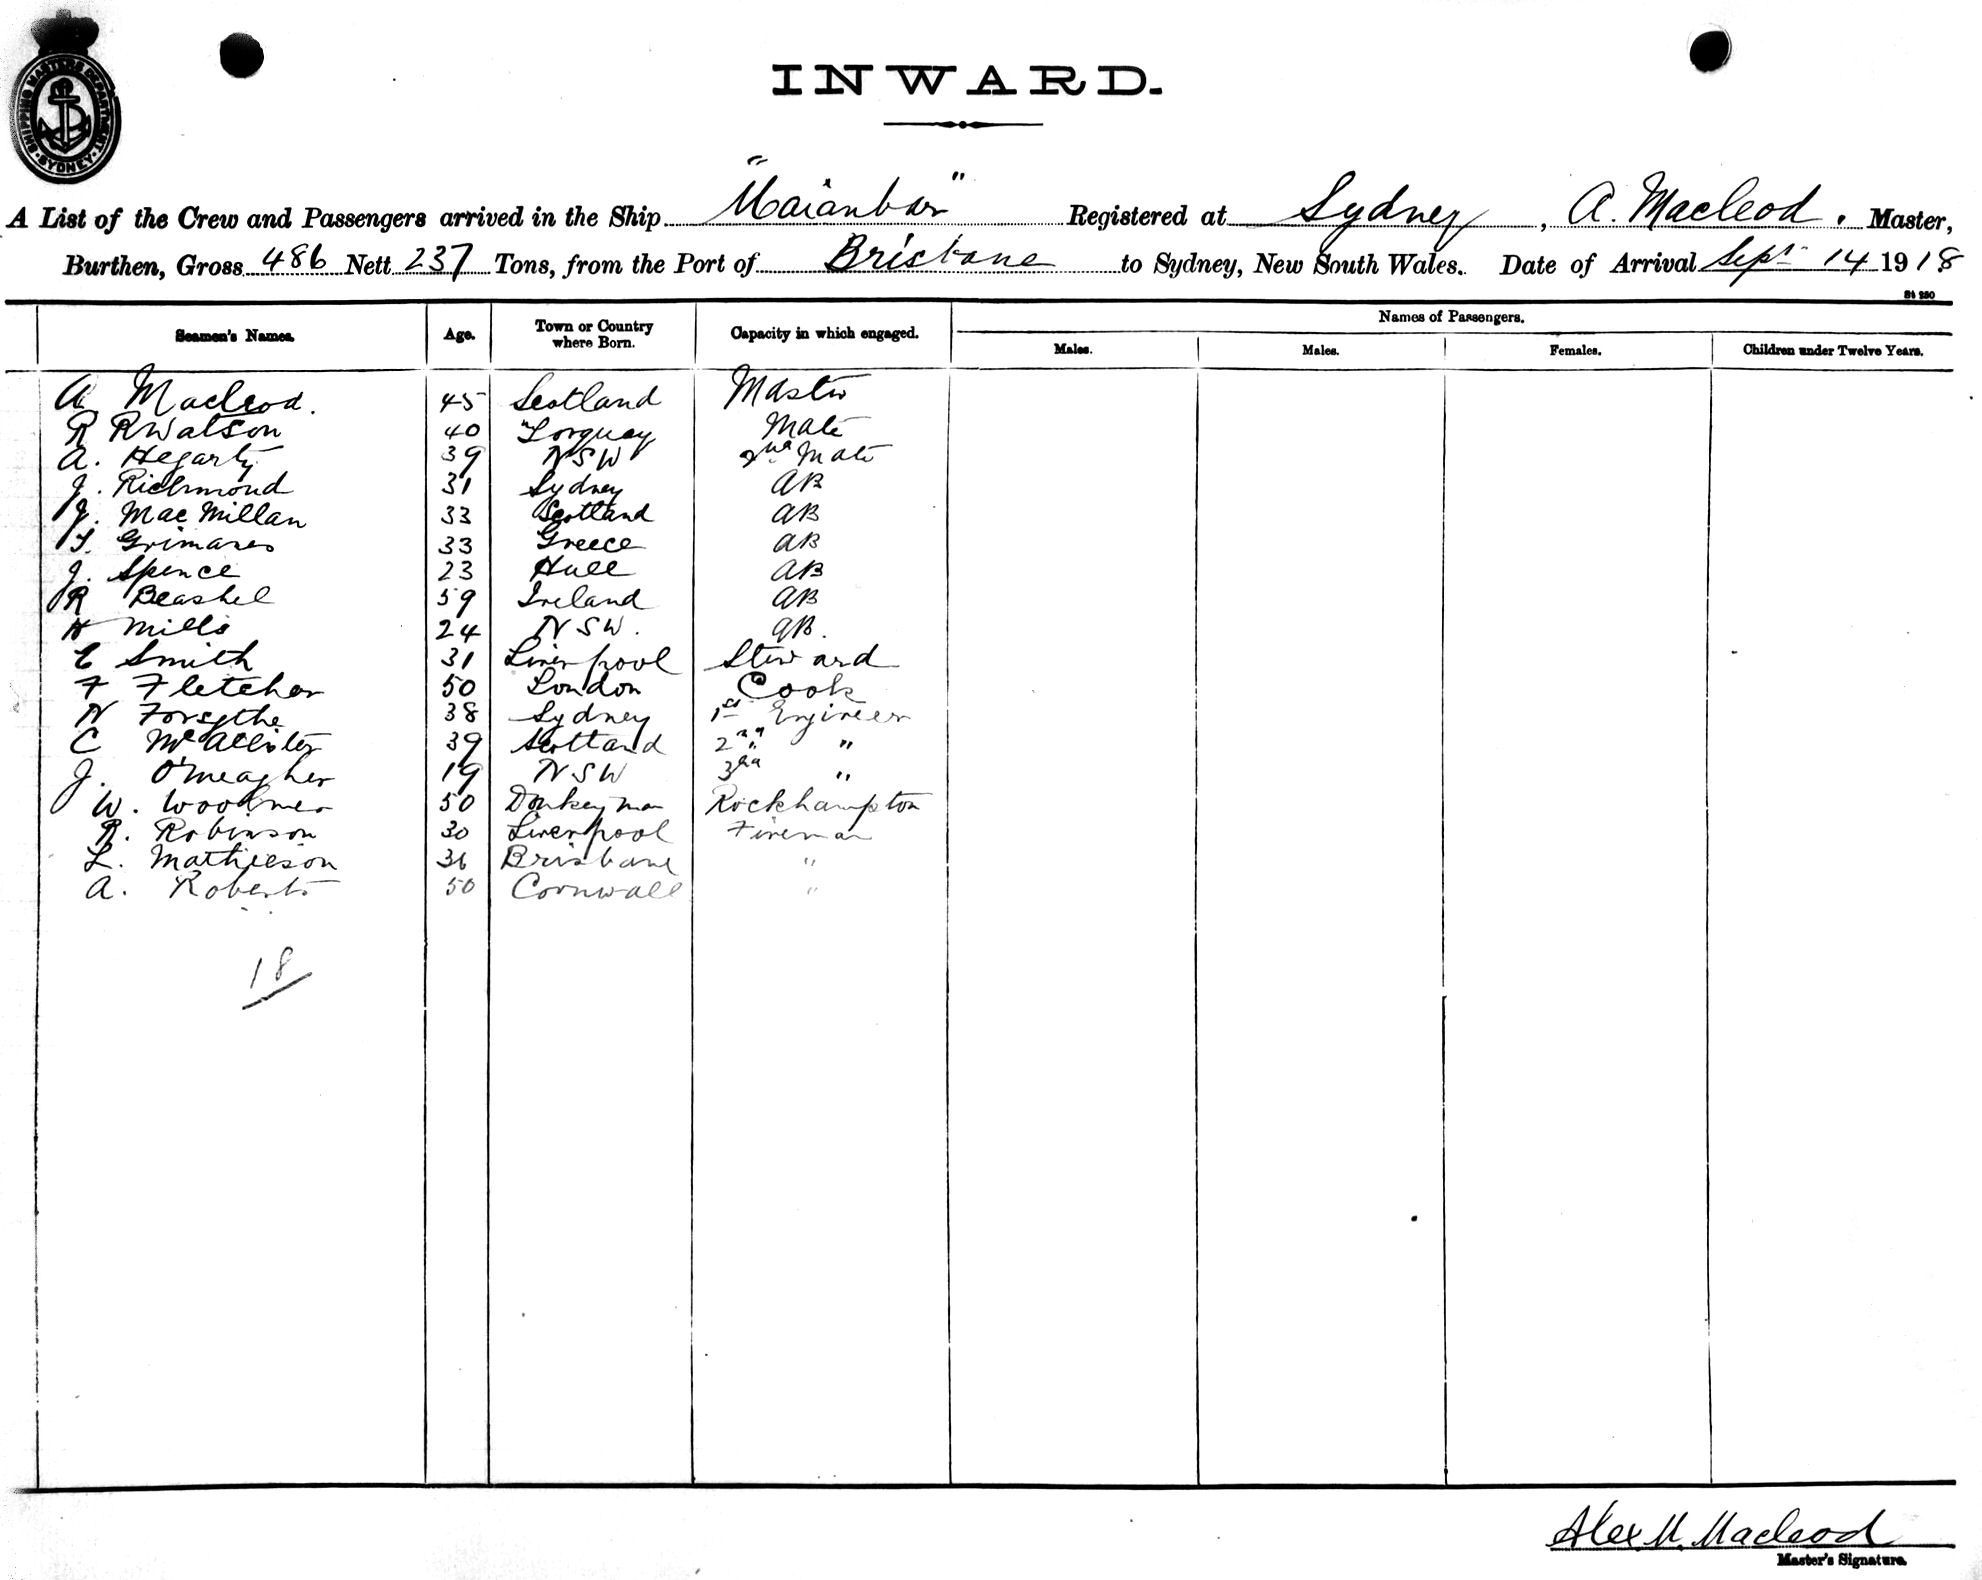 SHIPPING MASTERS DEPARTMENT
SYDNEY
INWARD.
A List of the Crew and Passengers arrived in the Ship "Maianbar" Registered at Sydney, A. Macleod. Master,
Burthen, Gross 486 Nett 237 Tons, from the Port of Brisbane to Sydney, New South Wales. Date of Arrival Sept 14 1918
St 280
Seamen's Names. Age. Town or Country where Born. Capacity in which engaged. Names of Passengers.
Males. Males. Females. Children under Twelve Years.
A Macleod. 45 Scotland Master
R R Watson 40 Torquay Mate
A. Hegarty 39 NSW 2nd Mate
J. Richmond 31 Sydney AB
J. MacMillan 33 Scotland AB
Grimanes 33 Greece AB
J. Spence 23 Hull AB
R Beashel 59 Ireland AB
H Mills 24 NSW. AB.
E Smith 31 Liverpool Steward
F Fletcher 50 London Cook
N Forsythe 38 Sydney 1st Engineer
C McAllister 39 Scotland 2nd "
J. O'Meagher 19 NSW 3rd "
W. Woodmer 50 Donkeyman Rockhampton
R. Robinson 30 Liverpool Fireman
L. Mathieson 36 Brisbane "
A. Roberts 50 Cornwall "
18
Alex. M. Macleod
Master's Signature.